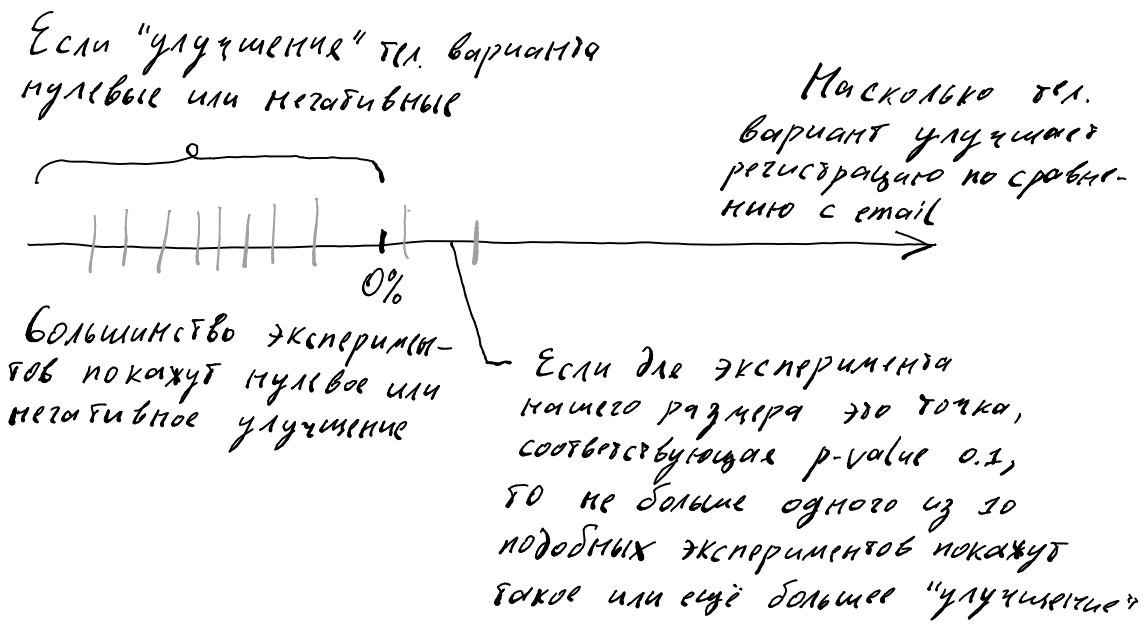 Если "улучшения" тел. варианта
нулевые или негативные
Насколько тел.
вариант улучшает
регистрацию по сравне-
нию с email
0%
Большинство эксперимен-
тов покажут нулевое или
негативное улучшение
Если для эксперимента
нашего размера это точка,
соответствующая p-value 0.1,
то не больше одного из 10
подобных экспериментов покажут
такое или ещё большее "улучшение"